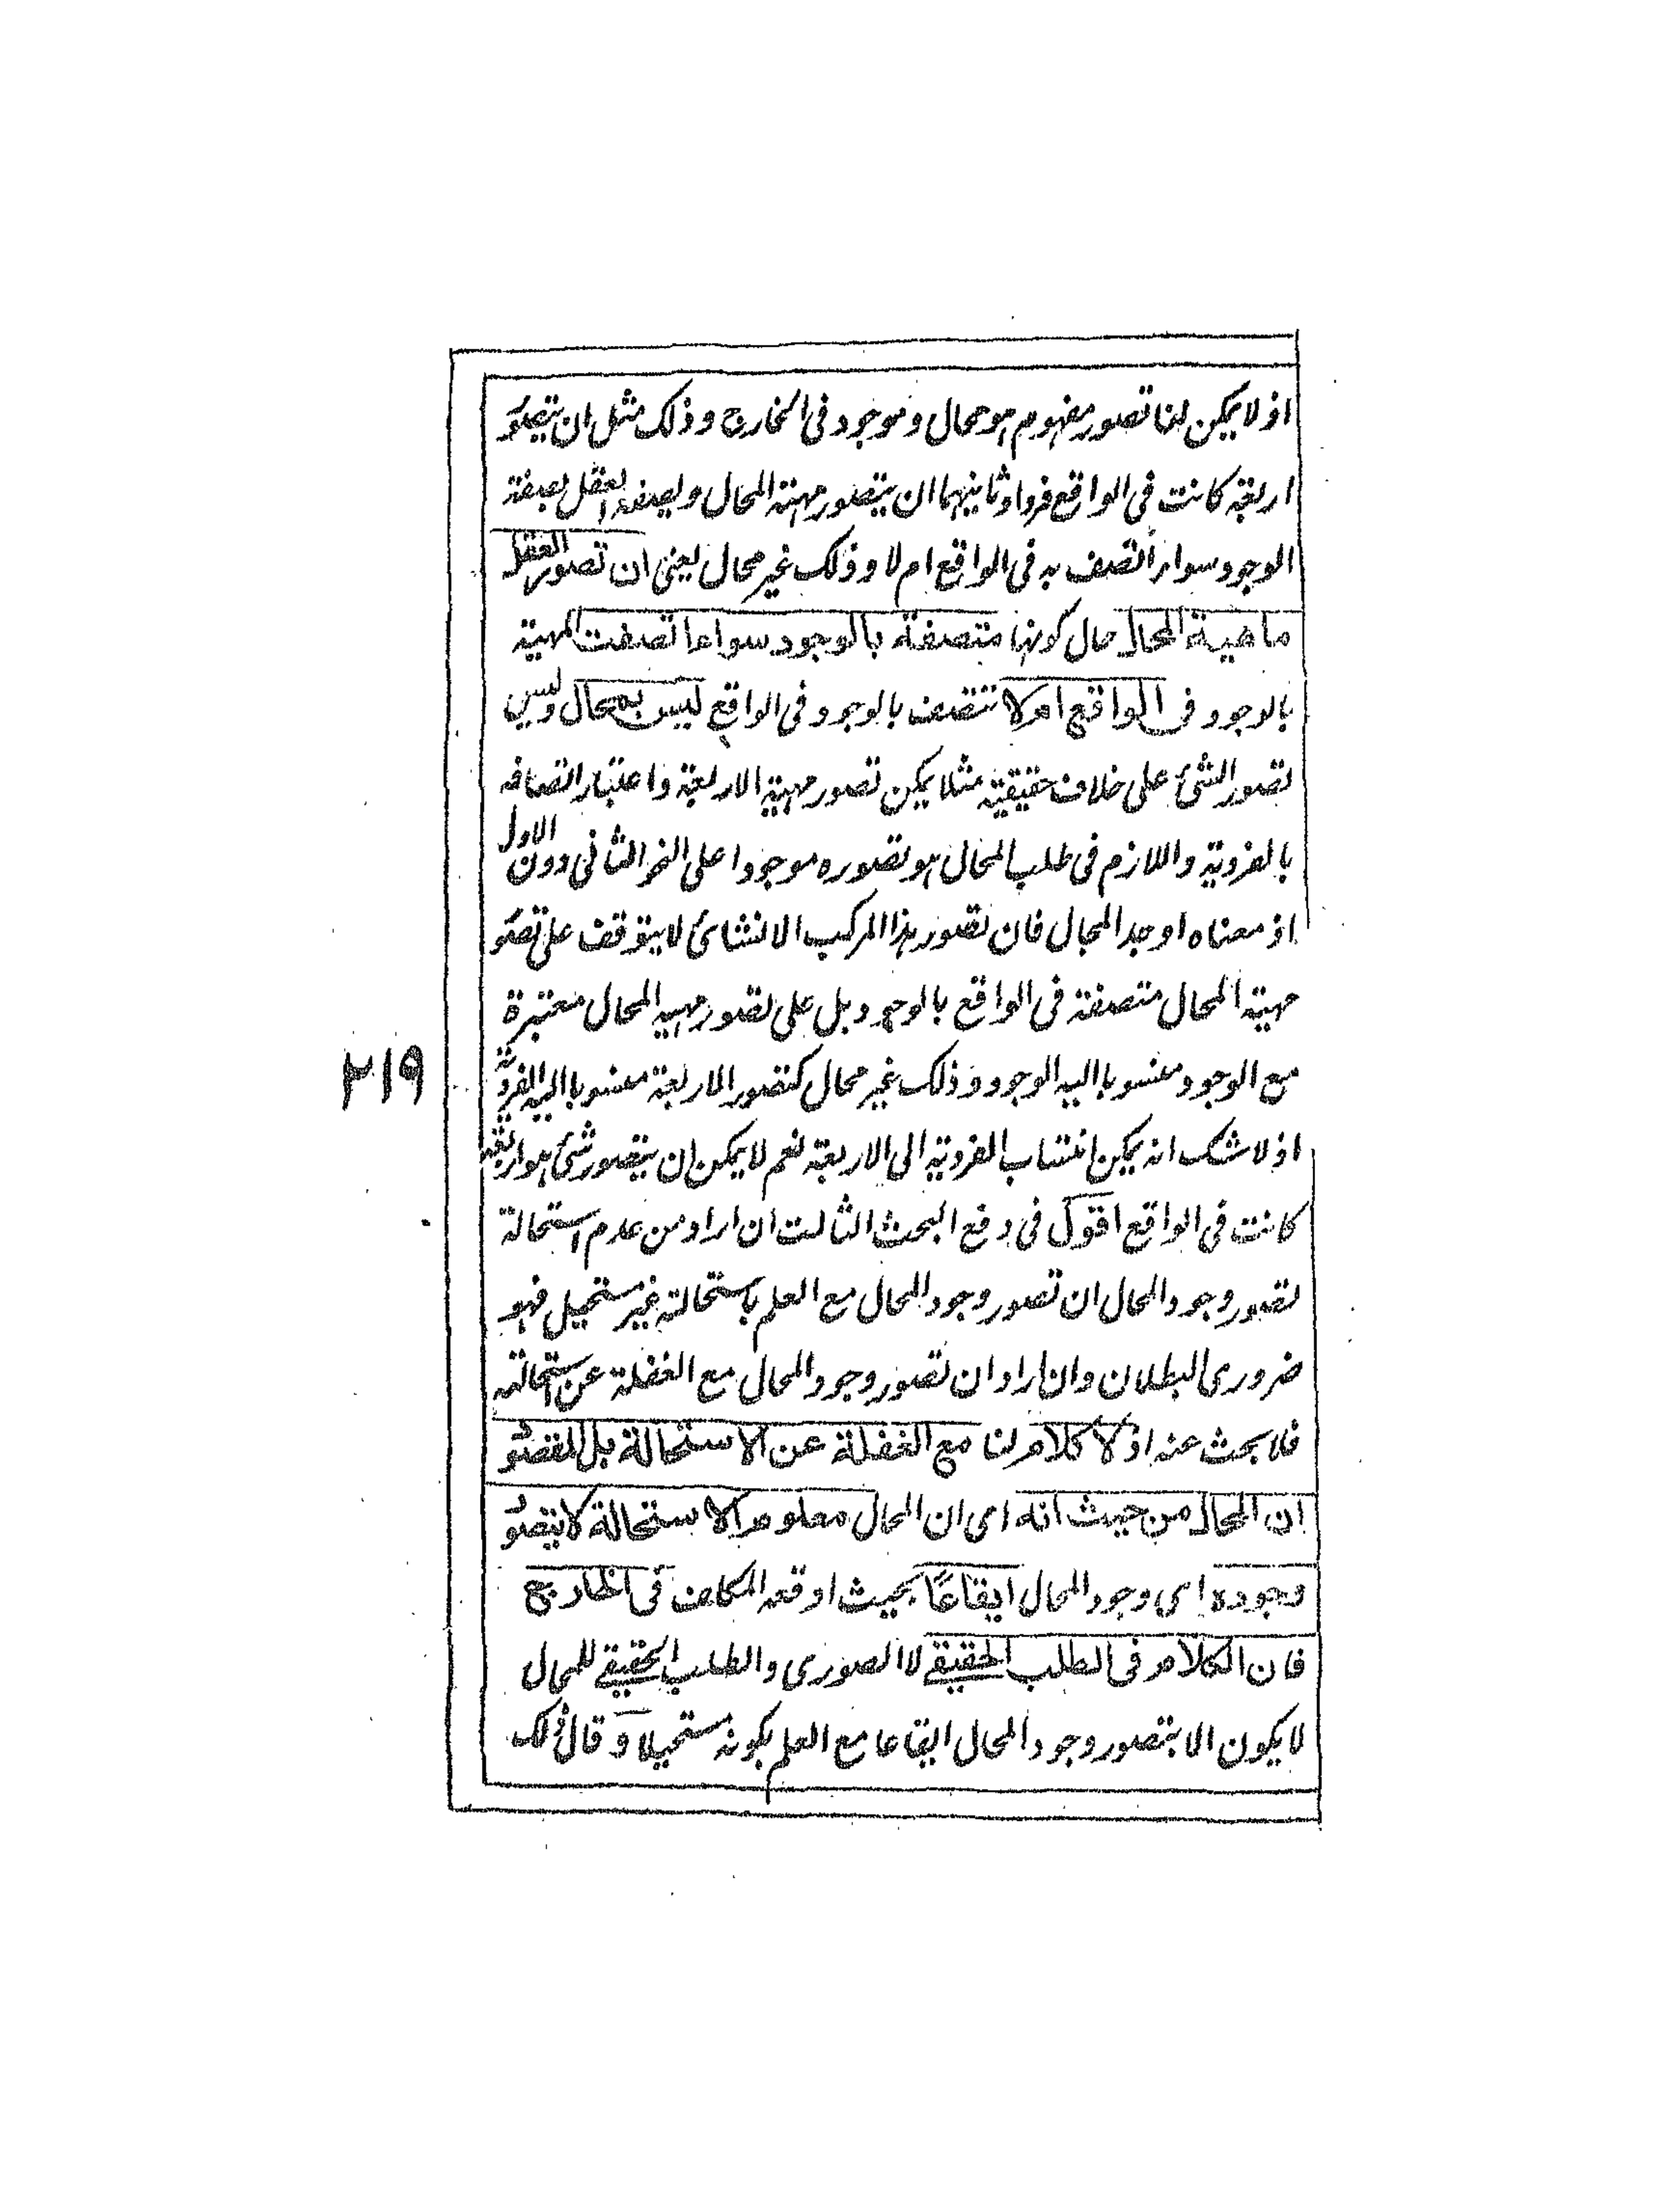 اذ لا يمكن لنا تصور مفهوم هو محال وموجود فى الخارج وذلك مثل ان يتصور
اربعة كانت فى الواقع فردا وثانيهما ان يتصور مهية المحال ويصفه العقل بصفة
الوجود سواء اتصف به فى الواقع ام لا وذلك غير محال يعنى ان تصور العقل
ماهية المحال حال كونها متصفة بالوجود سواء اتصفت المهية
بالوجود فى الواقع امرلا تتصف بالوجود فى الواقع ليس بمحال وليس
تصور الشئ على خلاف حقيقية مثلا يمكن تصور مهية الاربعة واعتبار اتصافه
بالفردية واللازم فى طلب المحال هو تصوره موجودا على النحو الثانى دون الاول
اذ معناه اوجد المحال فان تصور هذا المركب الانشائ لا يتوقف على تصو
مهية المحال متصفة فى الواقع بالوجود بل على تصور مهية المحال معتبرة
مع الوجود منسوبا اليه الوجود وذلك غير محال كتصور الاربعة منسوبا اليه الفردية
اذ لا شك انه يمكن انتساب الفردية الى الاربعة نعم لا يمكن ان يتصور شئ هو اربعة
كانت فى الواقع اقول فى دفع البحث الثالث ان اراد من عدم استحالة
تصور وجود المحال ان تصور وجود المحال مع العلم باستحالته غير مستحيل فهو
ضرورى البطلان وان اراد ان تصور وجود المحال مع الغفلة عن استحالته
فلا بحث عنه اذ لا كلام لنا مع الغفلة عن الاستحالة بل المقصو
ان المحال من حيث انه اى ان المحال معلوم الاستحالة لا يتصو
وجوده اى وجود المحال ايقاعًا بحيث اوقعه المكلف فى الخارج
فان الكلام فى الطلب الحقيقے لا الصورى والطلب الحقيقے للمحال
لا يكون الا بتصور وجود المحال ايقاعا مع العلم بكونه مستحيلا و قال ذلك
٢١٩